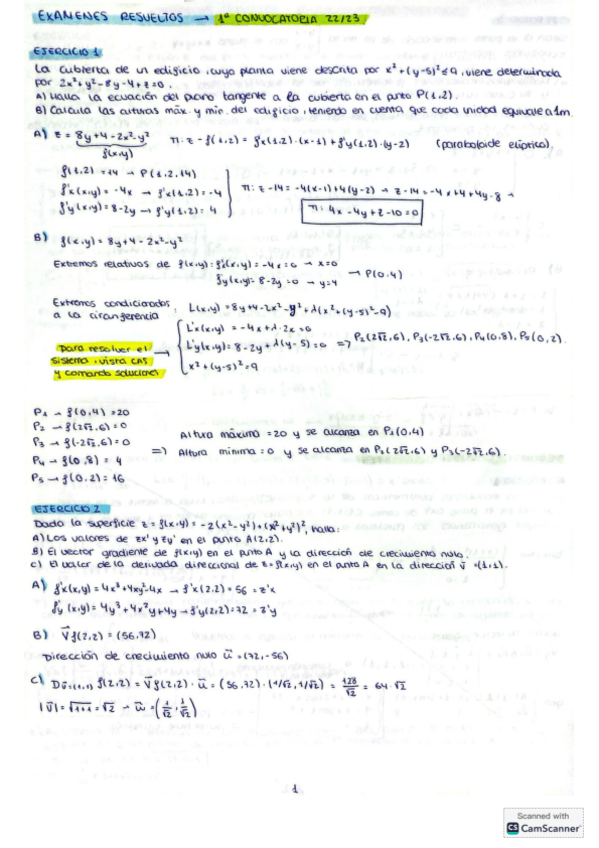 EXAMENES RESUELTOS → 1ª CONVOCATORIA 22/23
EJERCICIO 1
La cubierta de un edificio, cuya planta viene descrita por x²+(y-5)²≤9, viene determinada
por 2x²+y²-8y-4+z=0.
A) Halla la ecuación del plano tangente a la cubierta en el punto P(1,2).
B) Calcula las alturas máx. y mín. del edificio, teniendo en cuenta que cada unidad equivale a 1m.
A) z = 8y+4-2x²-y² π: z-f(1,2) = f'x(1,2)·(x-1)+f'y(1,2)·(y-2) (paraboloide elíptico).
f(x,y)
f(1,2) = 14 → P(1,2,14)
f'x(x,y) = -4x → f'x(1,2) = -4 π: z-14 = -4(x-1)+4(y-2) → z-14 = -4x+4+4y-8 →
f'y(x,y) = 8-2y → f'y(1,2) = 4
π: 4x-4y+z-10=0
B) f(x,y) = 8y+4-2x²-y²
Extremos relativos de f(x,y): f'x(x,y) = -4x = 0 → x=0
f'y(x,y) = 8-2y = 0 → y=4 → P(0,4)
Extremos condicionados
a la circunferencia : L(x,y) = 8y+4-2x²-y²+λ(x²+(y-5)²-9)
L'x(x,y) = -4x+λ·2x=0
Para resolver el
sistema, vista CAS
y comando soluciones
L'y(x,y) = 8-2y+λ(y-5)=0 ⇒ P₂(2√2,6), P₃(-2√2,6), P₄(0,8), P₅(0,2).
x²+(y-5)²=9
P₁ → f(0,4) = 20
P₂ → f(2√2,6) = 0
P₃ → f(-2√2,6) = 0
P₄ → f(0,8) = 4
P₅ → f(0,2) = 16
⇒ Altura máxima = 20 y se alcanza en P₁(0,4)
Altura mínima = 0 y se alcanza en P₂(2√2,6) y P₃(-2√2,6).
EJERCICIO 2
Dada la superficie z = f(x,y) = -2(x²-y²)+(x²+y²)², halla:
A) Los valores de zx' y zy' en el punto A(2,2).
B) El vector gradiente de f(x,y) en el punto A y la dirección de crecimiento nulo.
C) El valor de la derivada direccional de z=f(x,y) en el punto A en la dirección v̄ = (1,1).
A) f'x(x,y) = 4x³+4xy²-4x → f'x(2,2) = 56 = z'x
f'y(x,y) = 4y³+4x²y+4y → f'y(2,2) = 72 = z'y
B) ∇f(2,2) = (56,72)
Dirección de crecimiento nulo ū = (72,-56)
C) Dū=(1,1) f(2,2) = ∇f(2,2)·ū = (56,72)·(1/√2,1/√2) = 128/√2 = 64·√2
|v̄| = √1+1 = √2 → ū = (1/√2, 1/√2)
1
Scanned with
CS CamScanner